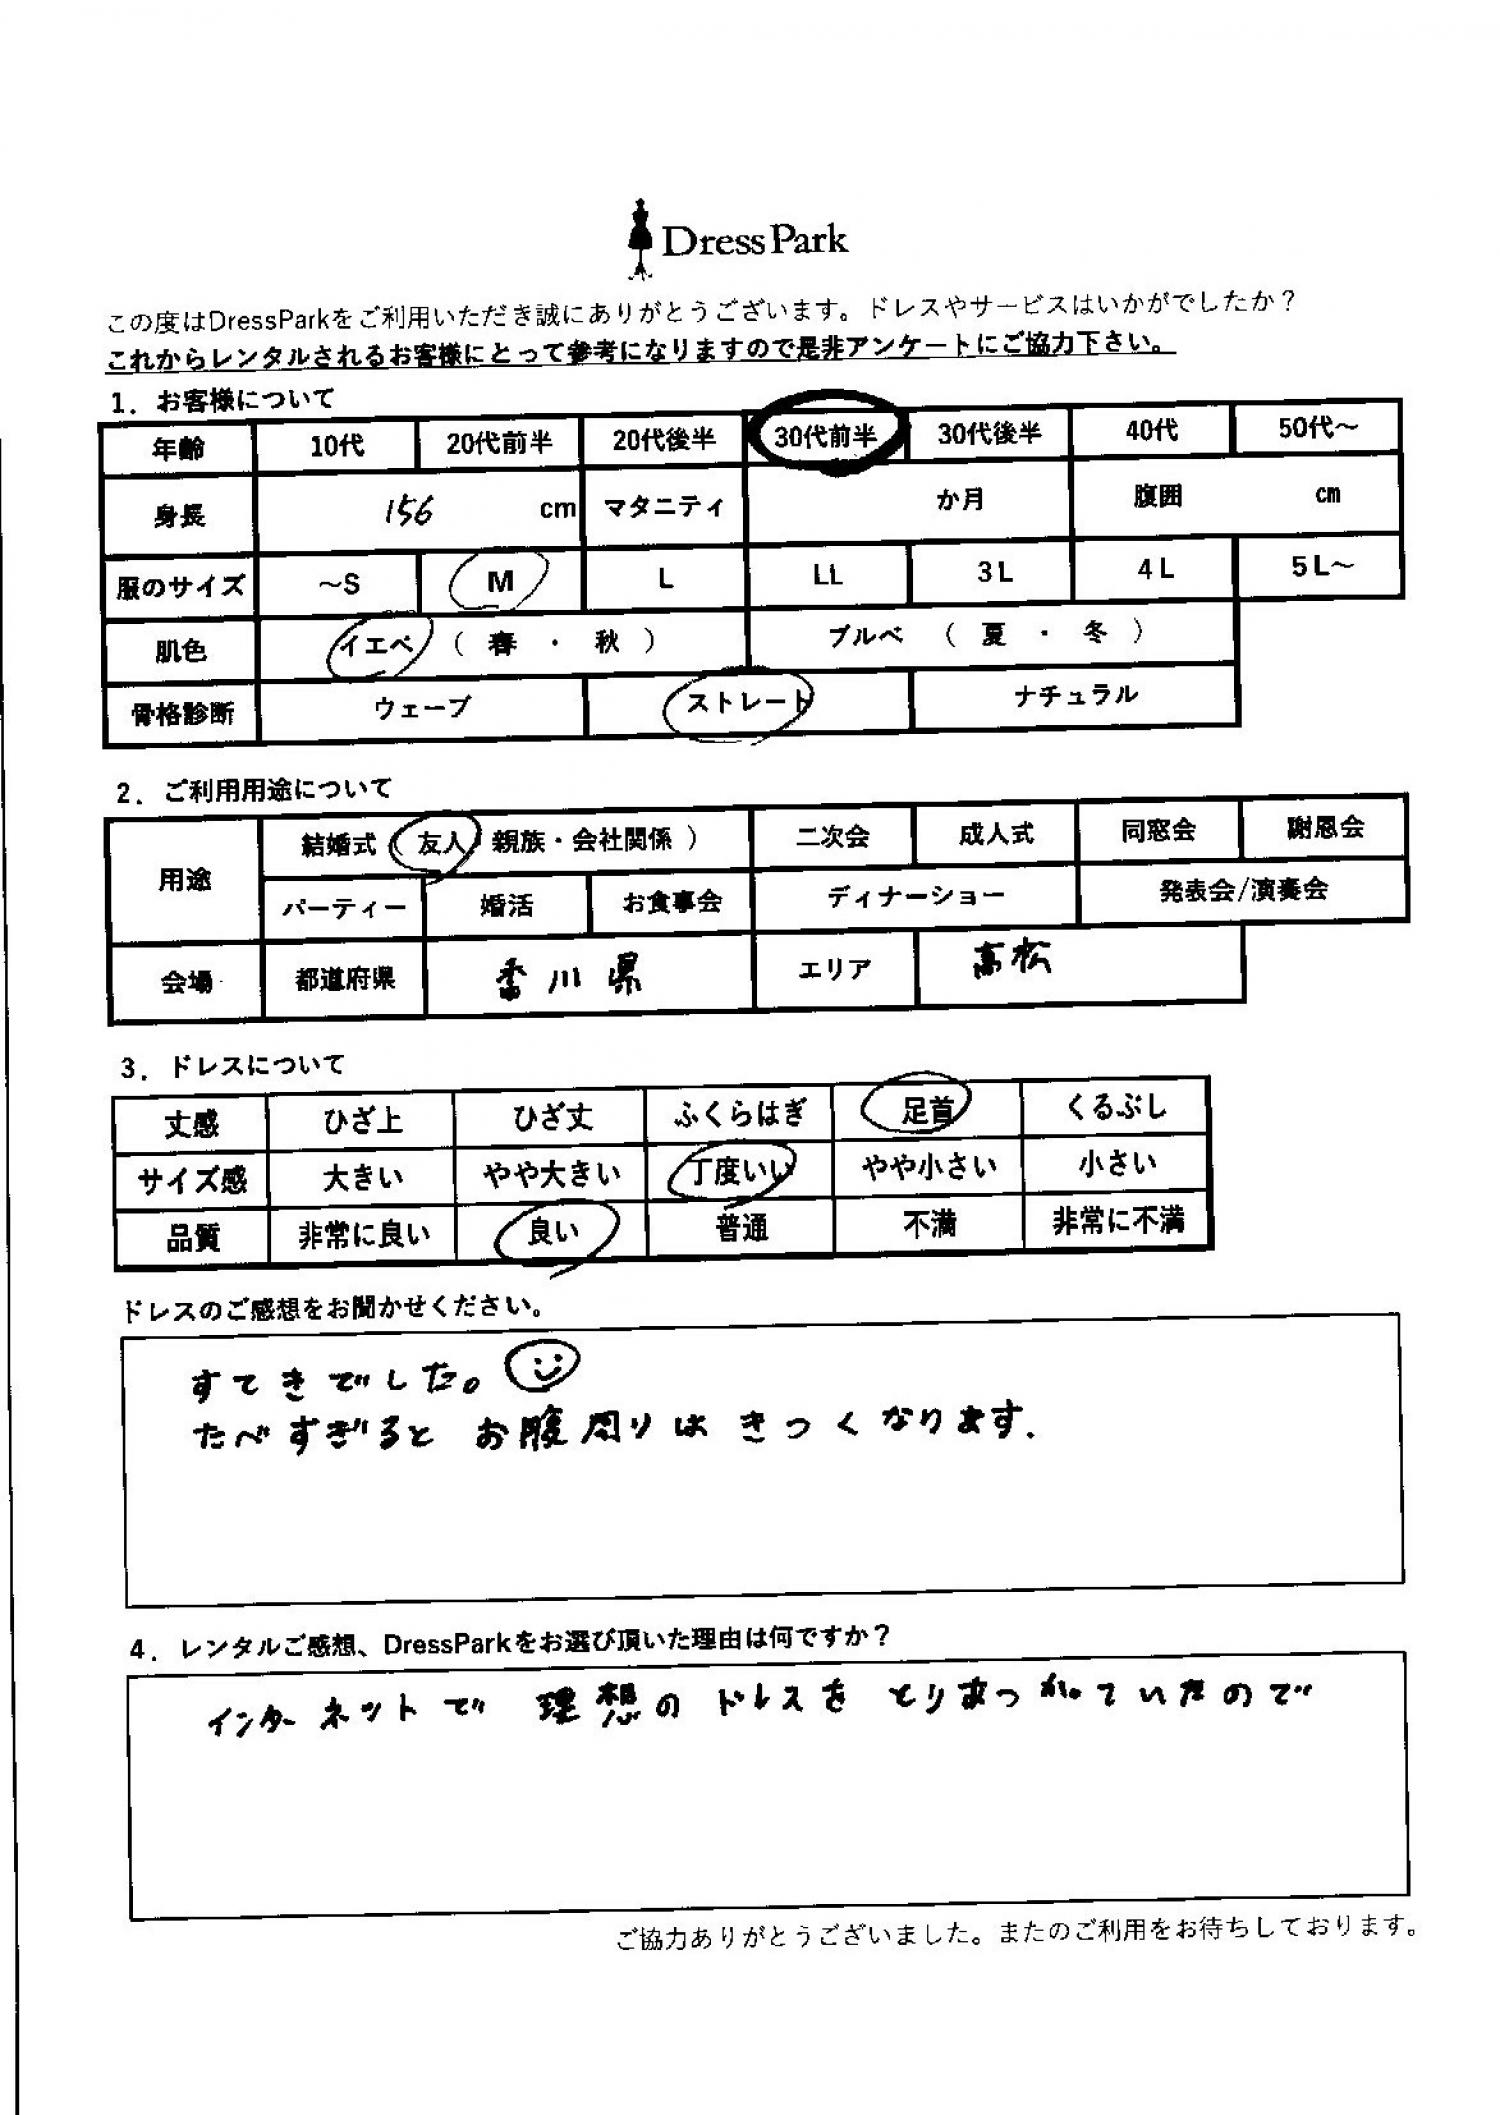 Dress Park
この度はDressParkをご利用いただき誠にありがとうございます。ドレスやサービスはいかがでしたか？
これからレンタルされるお客様にとって参考になりますので是非アンケートにご協力下さい。
1．お客様について
年齢 10代 20代前半 20代後半 30代前半 30代後半 40代 50代～
身長 156 cm マタニティ か月 腹囲 cm
服のサイズ ～S M L LL 3L 4L 5L～
肌色 イエベ（ 春 ・ 秋 ） ブルベ （ 夏 ・ 冬 ）
骨格診断 ウェーブ ストレート ナチュラル
2．ご利用用途について
用途 結婚式（友人 親族・会社関係 ） 二次会 成人式 同窓会 謝恩会
パーティー 婚活 お食事会 ディナーショー 発表会/演奏会
会場 都道府県 香川県 エリア 高松
3．ドレスについて
丈感 ひざ上 ひざ丈 ふくらはぎ 足首 くるぶし
サイズ感 大きい やや大きい 丁度いい やや小さい 小さい
品質 非常に良い 良い 普通 不満 非常に不満
ドレスのご感想をお聞かせください。
すてきでした。
たべすぎると お腹周りは きつくなります.
4．レンタルご感想、DressParkをお選び頂いた理由は何ですか？
インターネットで 理想の ドレスを とりあつかっていたので
ご協力ありがとうございました。またのご利用をお待ちしております。